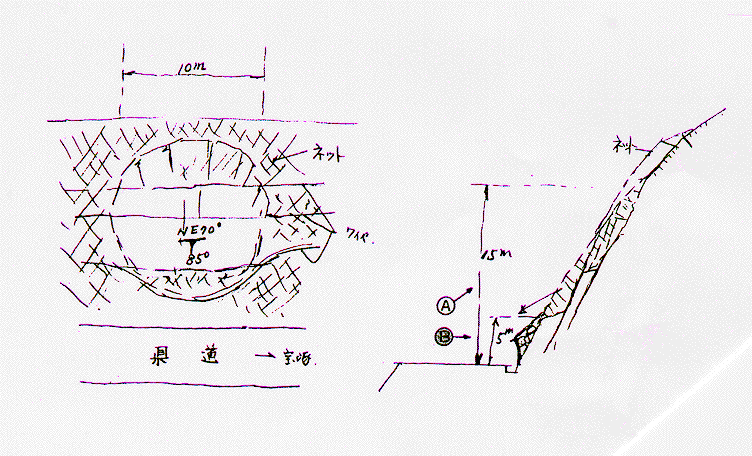 10m
ネット
ワイヤ.
NE70°
85°
県道 → 宝塚.
ネット
15m
Ⓐ
Ⓑ
5m